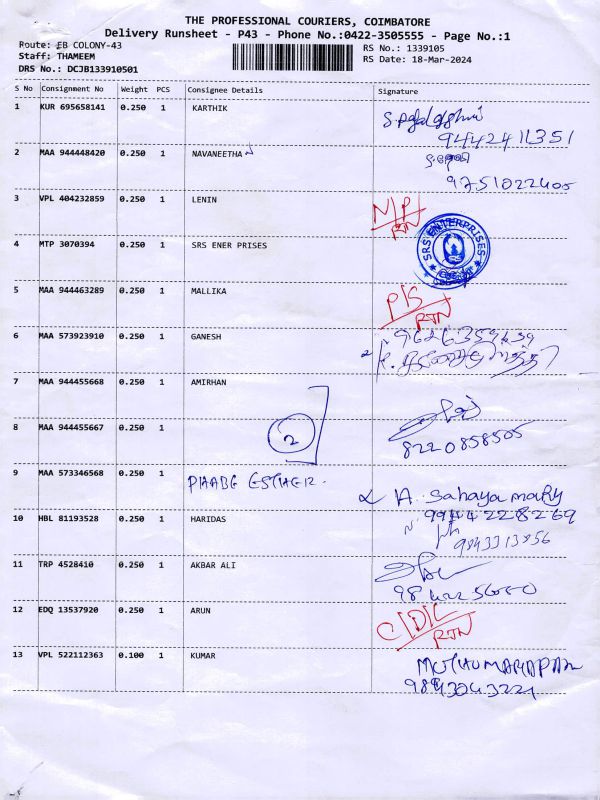 THE PROFESSIONAL COURIERS, COIMBATORE
Delivery Runsheet - P43 - Phone No.:0422-3505555 - Page No.:1
Route: EB COLONY-43 RS No.: 1339105
Staff: THAMEEM RS Date: 18-Mar-2024
DRS No.: DCJB133910501
S No Consignment No Weight PCS Consignee Details Signature
1 KUR 695658141 0.250 1 KARTHIK
9442411351
2 MAA 944448420 0.250 1 NAVANEETHA
9751022405
3 VPL 404232859 0.250 1 LENIN N/P
RTN
4 MTP 3070394 0.250 1 SRS ENER PRISES SRS ENTERPRISES
5 MAA 944463289 0.250 1 MALLIKA P/S
RTN
6 MAA 573923910 0.250 1 GANESH
7 MAA 944455668 0.250 1 AMIRHAN
8 MAA 944455667 0.250 1 2
8220858505
9 MAA 573346568 0.250 1 A. Sahaya mary
9944228269
10 HBL 81193528 0.250 1 HARIDAS
9843313856
11 TRP 4528410 0.250 1 AKBAR ALI
12 EDQ 13537920 0.250 1 ARUN
RTN
13 VPL 522112363 0.100 1 KUMAR
9843043221